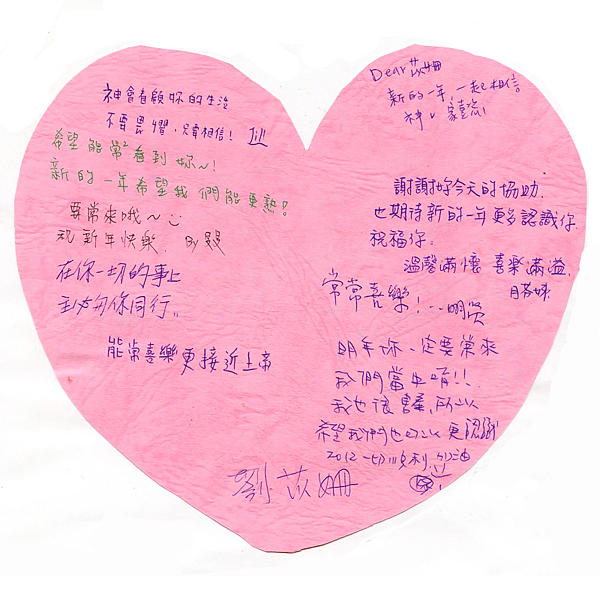 神會看顧妳的生活
不要畏懼，只要相信！
希望能常看到妳～！
新的一年希望我們能更熟！
要常來哦～
祝新年快樂
在你一切的事上
主必与你同行。
能常喜樂更接近上帝
Dear 苡姍
新的一年，一起相信
神
謝謝妳今天的協助，
也期待新的一年更多認識你
祝福你。
溫馨滿懷 喜樂滿溢。
常常喜樂！
明年你一定要常來
我們當中唷!!
我也很害羞，所以
希望我們也可以更認識
2012一切順利，加油
劉苡姍